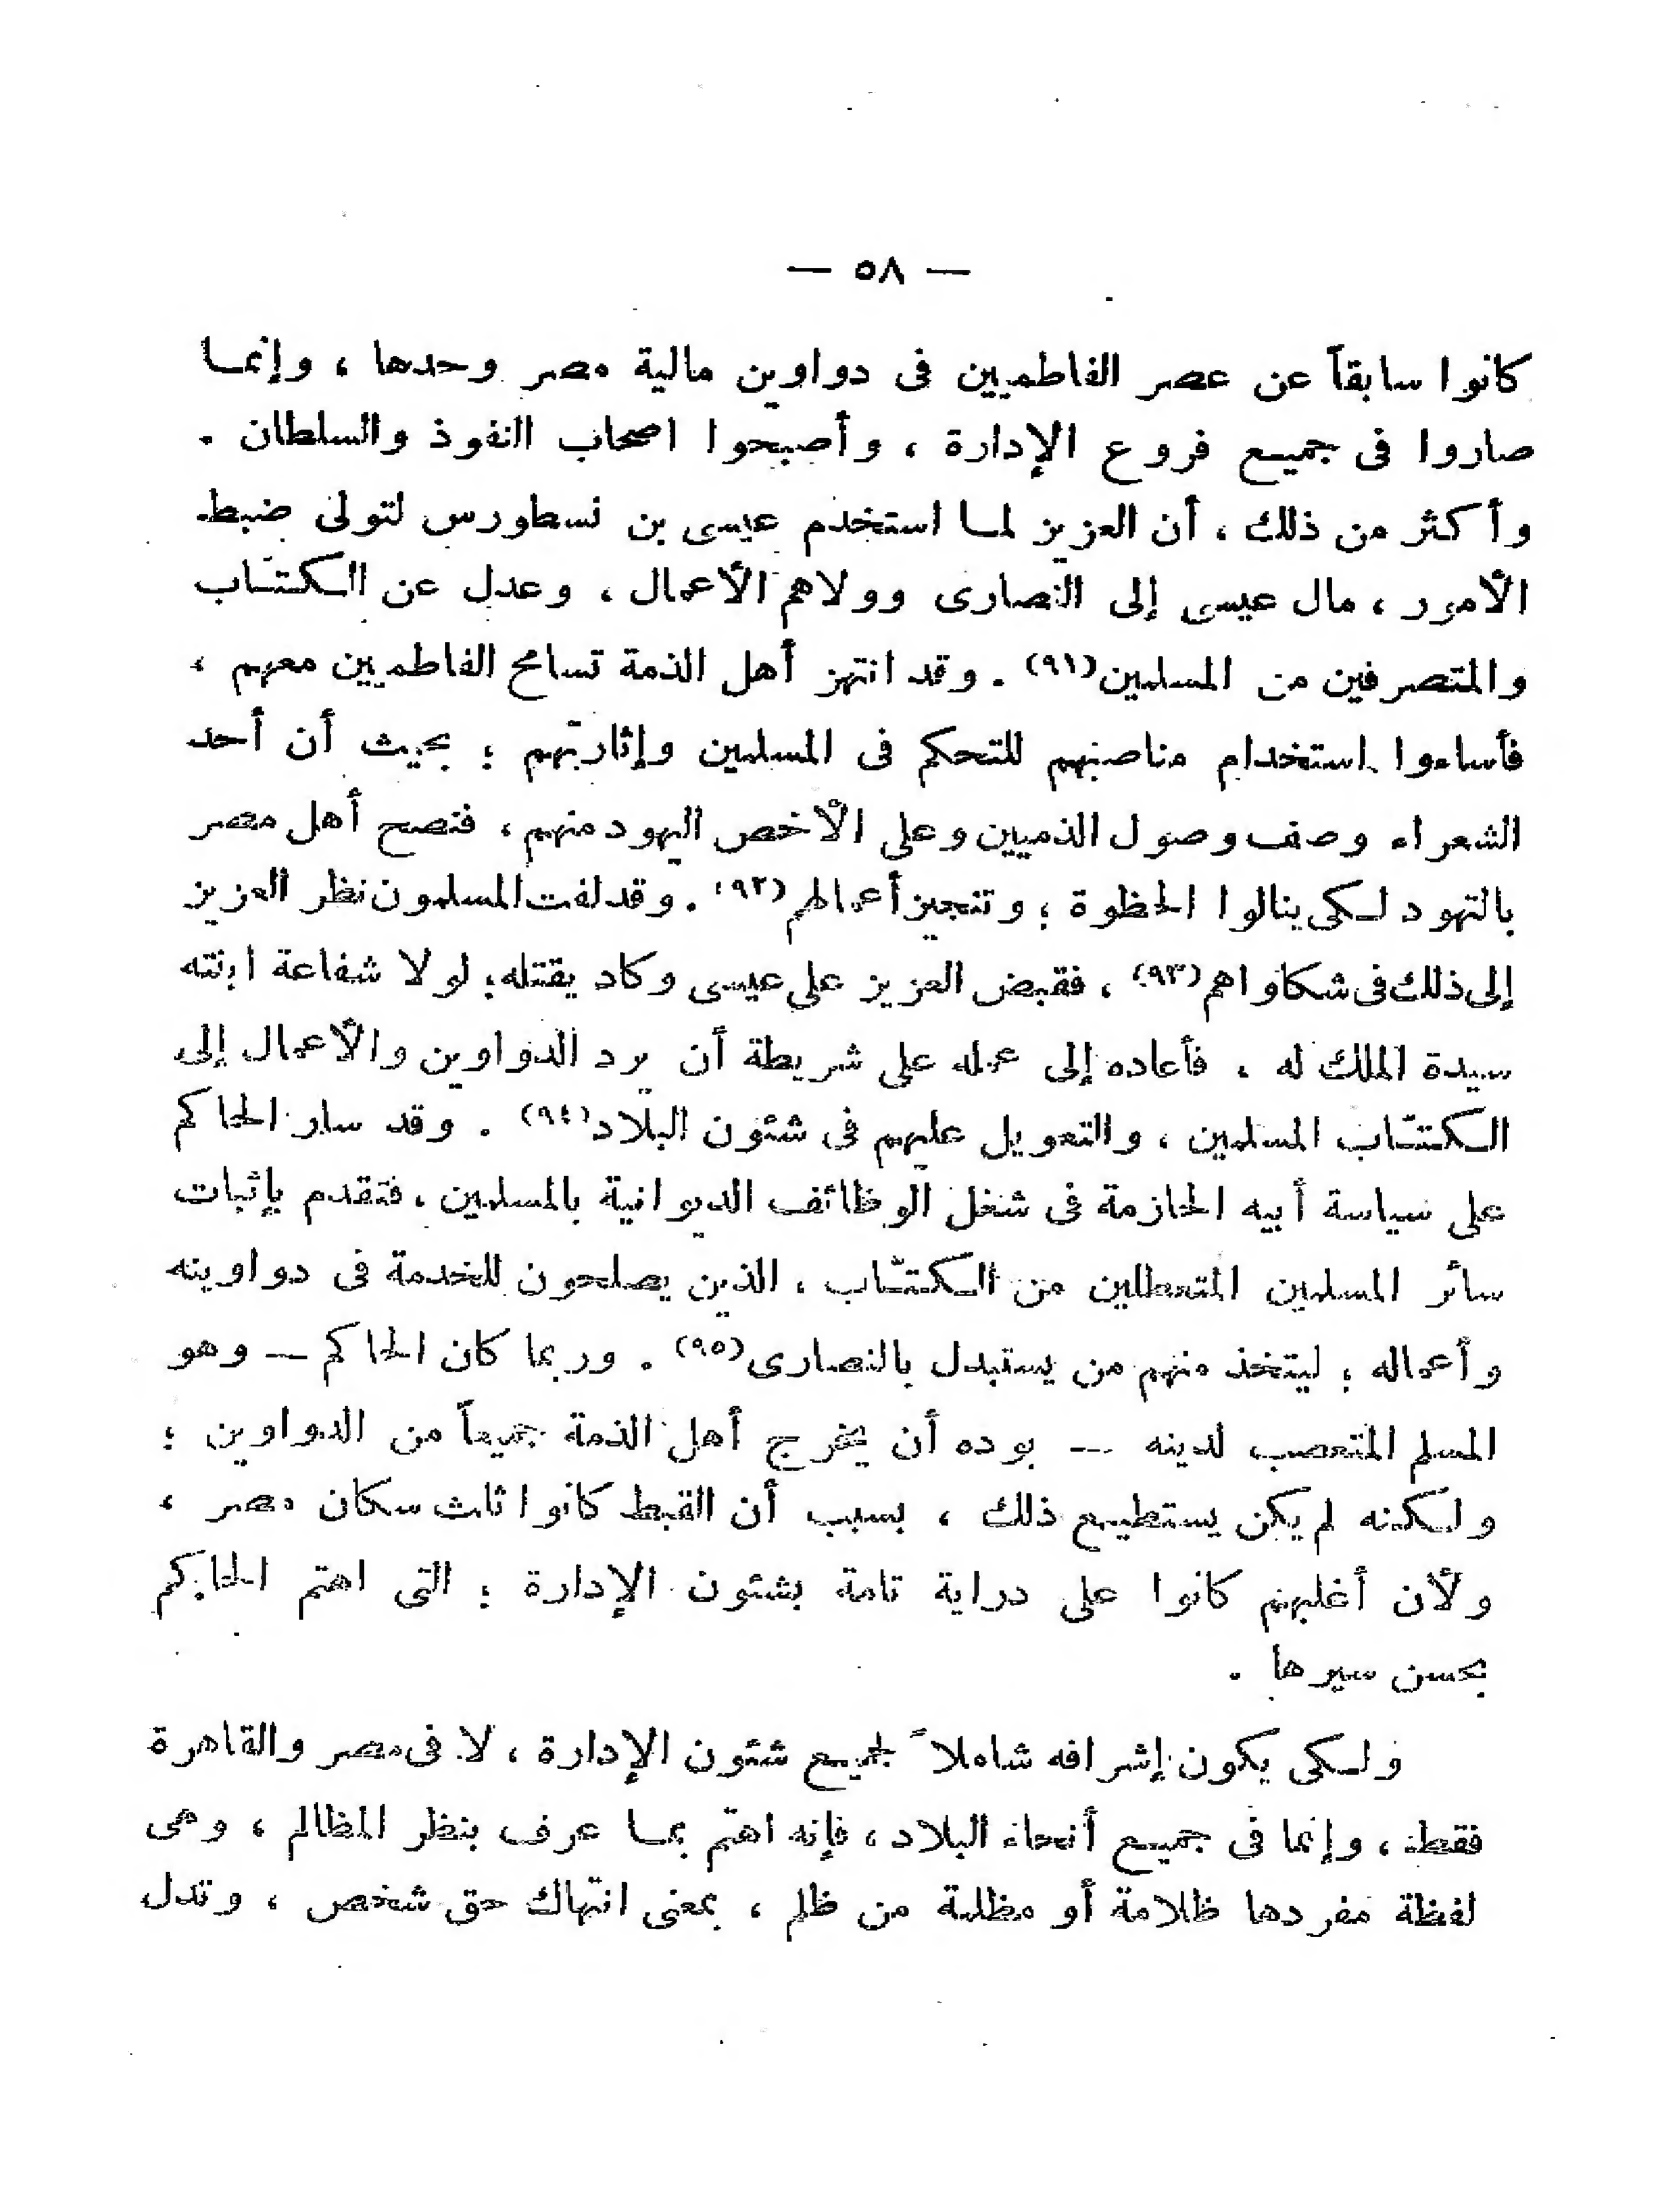 — ٥٨ —
كانوا سابقاً عن عصر الفاطميين فى دواوين مالية مصر وحدها ، وإنما
صاروا فى جميع فروع الإدارة ، وأصبحوا اصحاب النفوذ والسلطان .
وأكثر من ذلك ، أن العزيز لما استخدم عيسى بن نسطورس لتولى ضبط
الأمور ، مال عيسى إلى النصارى وولاهم الأعمال ، وعدل عن الكتّاب
والمتصرفين من المسلمين(٩١) . وقد انتهز أهل الذمة تسامح الفاطميين معهم ،
فأساءوا استخدام مناصبهم للتحكم فى المسلمين وإثارتهم ؛ بحيث أن أحد
الشعراء وصف وصول الذميين وعلى الأخص اليهود منهم ، فنصح أهل مصر
بالتهود لكى ينالوا الحظوة ؛ وتنجيز أعمالهم(٩٢) . وقد لفت المسلمون نظر العزيز
إلى ذلك فى شكاواهم(٩٣) ، فقبض العزيز على عيسى وكاد يقتله ؛ لولا شفاعة ابنته
سيدة الملك له . فأعاده إلى عمله على شريطة أن يرد الدواوين والأعمال إلى
الكتّاب المسلمين ، والتعويل عليهم فى شئون البلاد(٩٤) . وقد سار الحاكم
على سياسة أبيه الحازمة فى شغل الوظائف الديوانية بالمسلمين ، فتقدم بإثبات
سائر المسلمين المتعطلين من الكتّاب ، الذين يصلحون للخدمة فى دواوينه
وأعماله ؛ ليتخذ منهم من يستبدل بالنصارى(٩٥) . وربما كان الحاكم — وهو
المسلم المتعصب لدينه — بوده أن يخرج أهل الذمة جميعاً من الدواوين ؛
ولكنه لم يكن يستطيع ذلك ، بسبب أن القبط كانوا ثلث سكان مصر ،
ولأن أغلبهم كانوا على دراية تامة بشئون الإدارة ؛ التى اهتم الحاكم
بحسن سيرها .
ولكى يكون إشرافه شاملاً لجميع شئون الإدارة ، لا فى مصر والقاهرة
فقط ، وإنما فى جميع أنحاء البلاد ، فإنه اهتم بما عرف بنظر المظالم ، وهى
لفظة مفردها ظلامة أو مظلمة من ظلم ، بمعنى انتهاك حق شخص ، وتدل